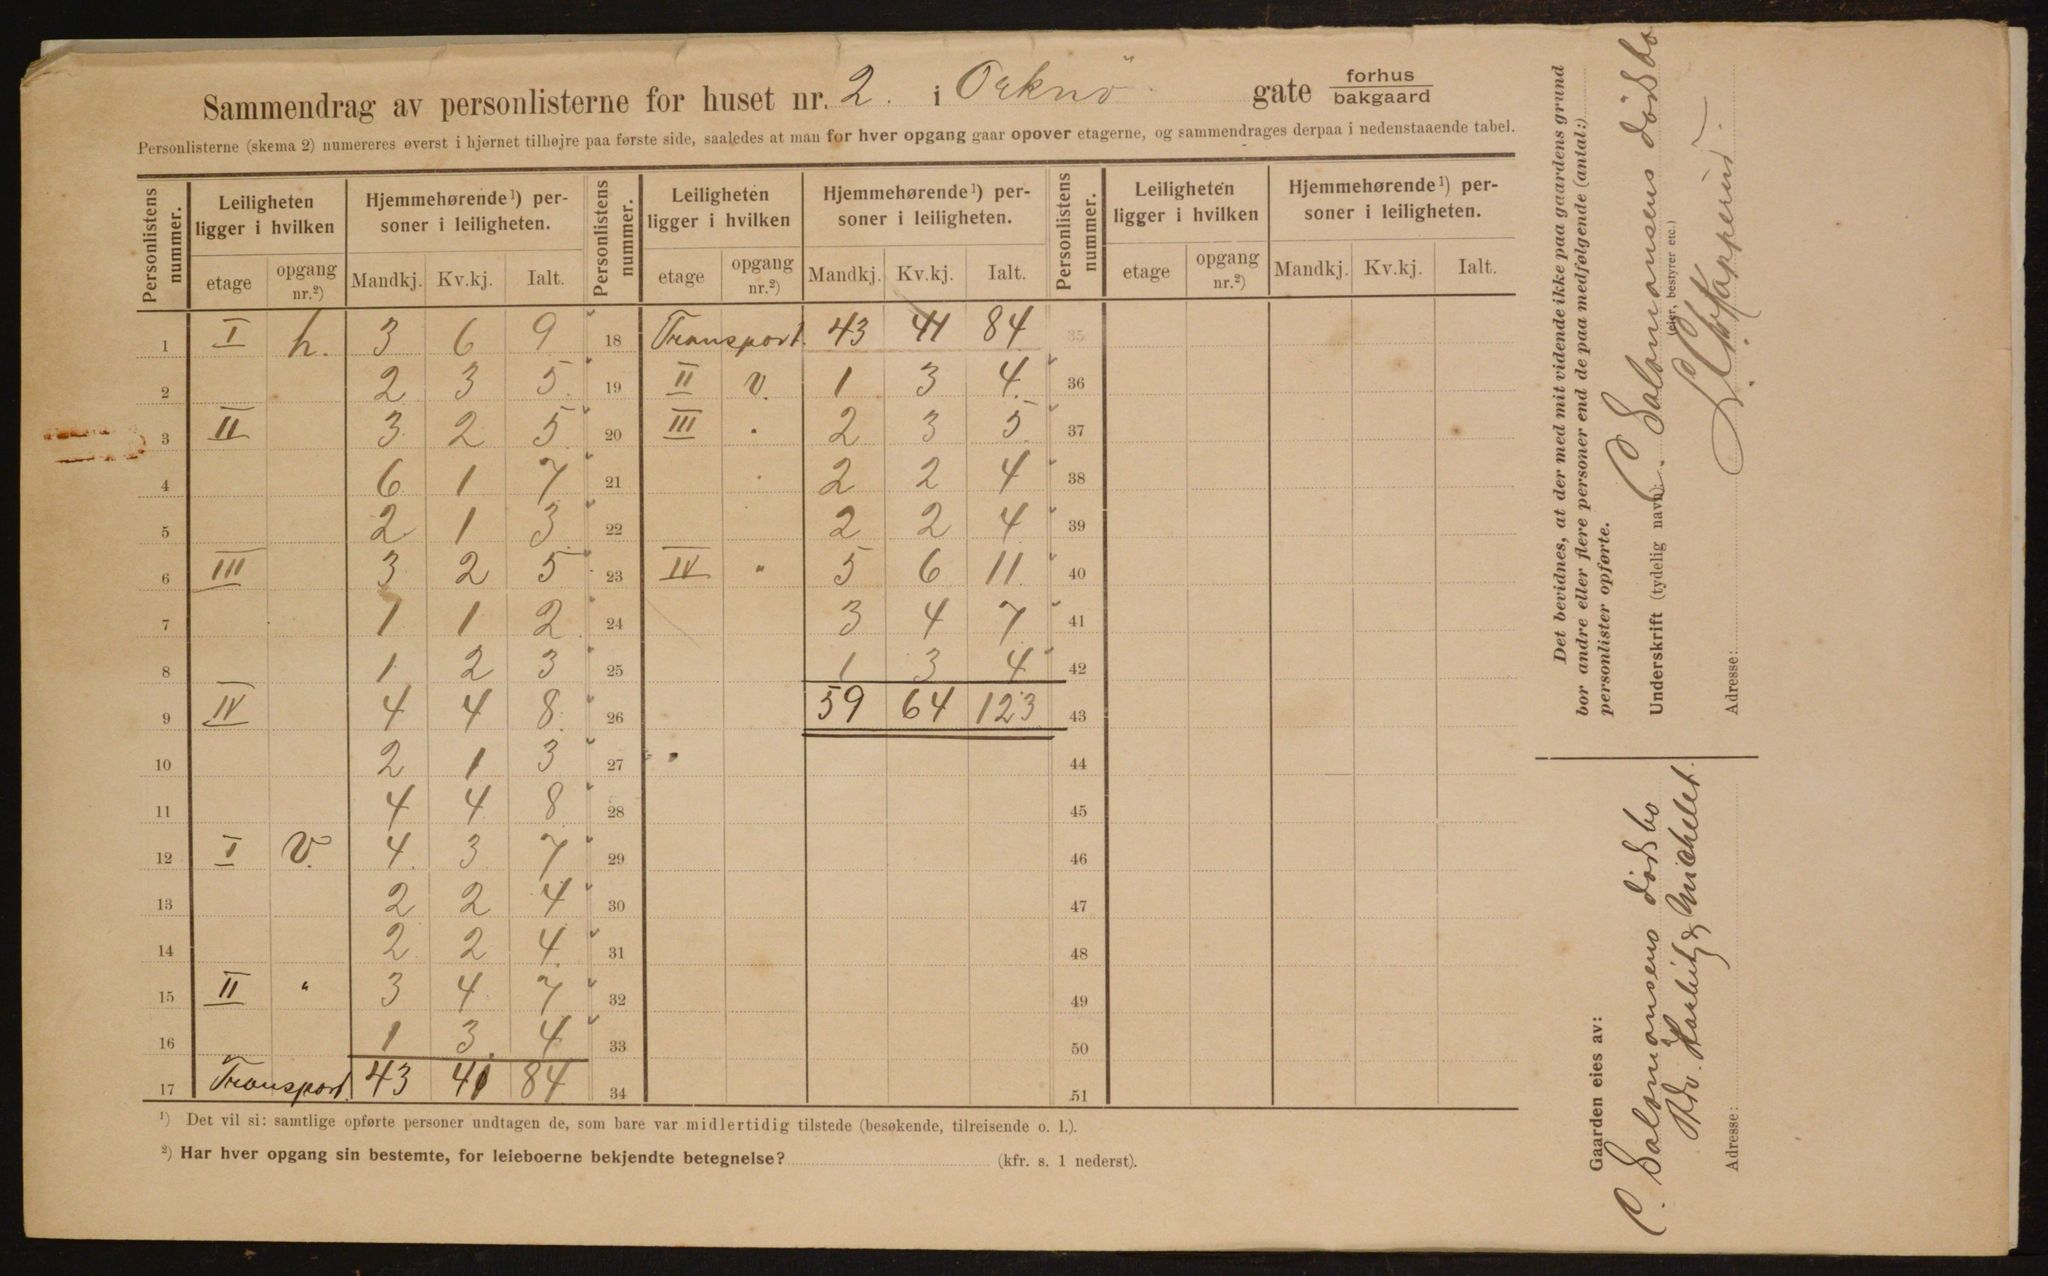 Sammendrag av personlisterne for huset nr. 2. i Orknö gate forhus
bakgaard
Personlisterne (skema 2) numereres øverst i hjørnet tilhøjre paa første side, saaledes at man for hver opgang gaar opover etagerne, og sammendrages derpaa i nedenstaaende tabel.
Personlistens nummer. Leiligheten ligger i hvilken Hjemmehørende ¹) personer i leiligheten. Personlistens nummer. Leiligheten ligger i hvilken Hjemmehørende ¹) personer i leiligheten. Personlistens nummer. Leiligheten ligger i hvilken Hjemmehørende ¹) personer i leiligheten.
etage opgang nr.²) Mandkj. Kv.kj. Ialt. etage opgang nr.²) Mandkj. Kv.kj. Ialt. etage opgang nr.²) Mandkj. Kv.kj. Ialt.
1 I h. 3 6 9 18 Transport 43 41 84 35
2 2 3 5 19 II v. 1 3 4 36
3 II 3 2 5 20 III " 2 3 5 37
4 6 1 7 21 " 2 2 4 38
5 2 1 3 22 2 2 4 39
6 III 3 2 5 23 IV " 5 6 11 40
7 1 1 2 24 3 4 7 41
8 1 2 3 25 1 3 4 42
9 IV 4 4 8 26 59 64 123 43
10 2 1 3 27 44
11 4 4 8 28 45
12 I V. 4 3 7 29 46
13 2 2 4 30 47
14 2 2 4 31 48
15 II " 3 4 7 32 49
16 1 3 4 33 50
17 Transport. 43 41 84 34 51
¹) Det vil si: samtlige opførte personer undtagen de, som bare var midlertidig tilstede (besøkende, tilreisende o. l.).
²) Har hver opgang sin bestemte, for leieboerne bekjendte betegnelse? (kfr. s. 1 nederst).
Det bevidnes, at der med mit vidende ikke paa gaardens grund
bor andre eller flere personer end de paa medfølgende (antal:)
personlister opførte.
Underskrift (tydelig navn): C. Salomonsens dödsbo
(eier, bestyrer etc.)
Adresse:
Garden eies av:
C. Salomonsens dödsbo
Adv. Harbitz & Michelet.
Adresse: